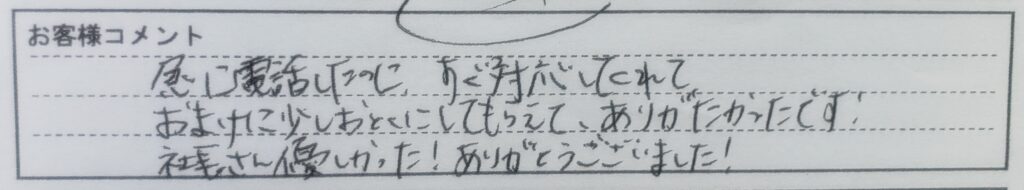 お客様コメント
急に電話したのに、すぐ対応してくれて
おまけに少しおとくにしてもらえて、ありがたかったです!
社長さん優しかった!ありがとうございました!